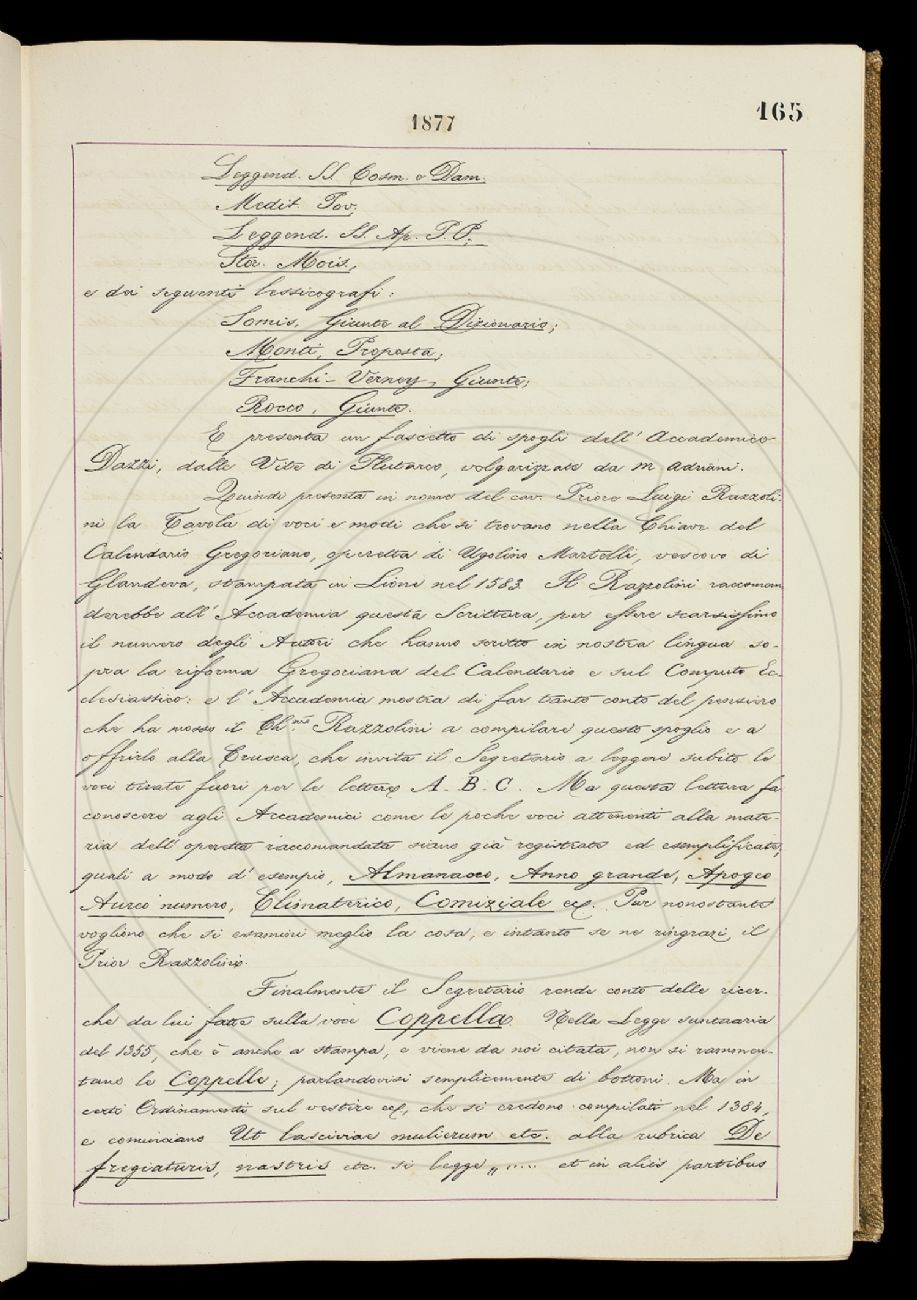 165
1877
Leggend. SS. Cosm. e Dam.
Medit. Pov.
Leggend. SS. Ap. P. P.
Stor. Mois.,
e dei seguenti lessicografi:
Somis, Giunte al Dizionario;
Monti, Proposta;
Franchi-Verney, Giunte;
Rocco, Giunte.
E presenta un fascetto di spogli dell' Accademico
Dazzi, dalle Vite di Plutarco, volgarizzate da M. Adriani.
Quindi presenta in nome del cav. Priore Luigi Razzoli-
ni la Tavola di voci e modi che si trovano nella Chiave del
Calendario Gregoriano, operetta di Ugolino Martelli, vescovo di
Glandeva, stampata in Lione nel 1583. Il Razzolini raccoman
derebbe all' Accademia questa Scrittura, per essere scarsissimo
il numero degli Autori che hanno scritto in nostra lingua so-
pra la riforma Gregoriana del Calendario e sul Computo Ec-
clesiastico: e l' Accademia mostra di far tanto conto del pensiero
che ha mosso il Ch.mo Razzolini a compilare questo spoglio e a
offrirlo alla Crusca, che invita il Segretario a leggere subito le
voci tirate fuori per le lettere A. B. C. Ma questa lettura fa
conoscere agli Accademici come le poche voci attenenti alla mate-
ria dell' operetta raccomandata siano già registrate ed esemplificate,
quali a modo d' esempio, Almanacco, Anno grande, Apogeo
Aureo numero, Climaterico, Comiziale ec. Pur nonostante
vogliono che si esamini meglio la cosa, e intanto se ne ringrazi il
Prior Razzolini.
Finalmente il Segretario rende conto delle ricer-
che da lui fatte sulla voce Coppella. Nella Legge suntuaria
del 1355, che è anche a stampa, e viene da noi citata, non si rammen-
tano le Coppelle; parlandovisi semplicemente di bottoni. Ma in
certi Ordinamenti sul vestire ec., che si credono compilati nel 1384,
e cominciano Ut lasciviae mulierum etc. alla rubrica De
fregiaturis, nastris etc. si legge „ ..... et in aliis partibus